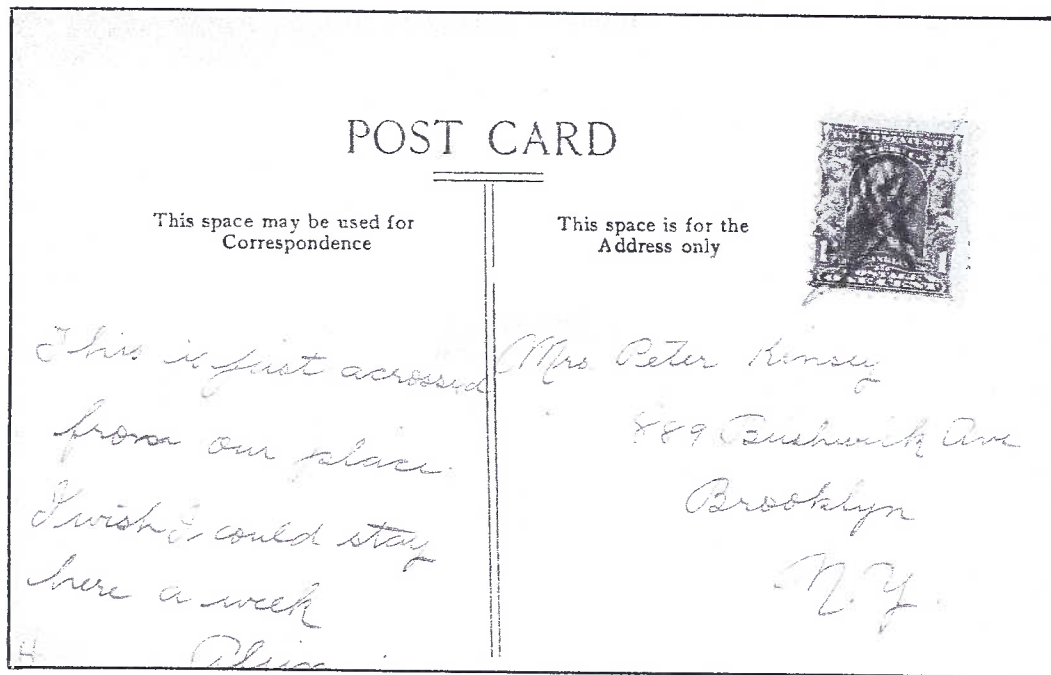 POST CARD
This space may be used for
Correspondence
This space is for the
Address only
This is just acrossed
from our place.
I wish I could stay
here a week
Mrs. Peter Kinsey
889 Bushwick Ave
Brooklyn
N.Y.
1 1
H